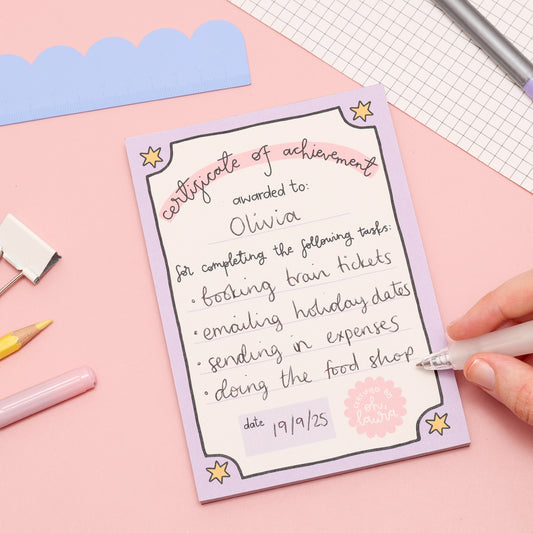 certificate of achievement
awarded to:
Olivia
for completing the following tasks:
• booking train tickets
• emailing holiday dates
• sending in expenses
• doing the food shop
date 19/9/25
oh,
laura